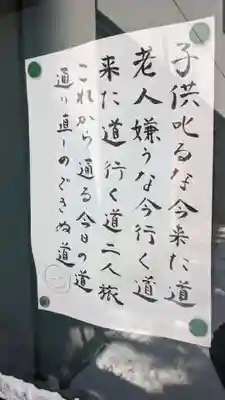 子供叱るな今来た道
老人嫌うな今行く道
来た道行く道二人旅
これから通る今日の道
通り直しのできぬ道